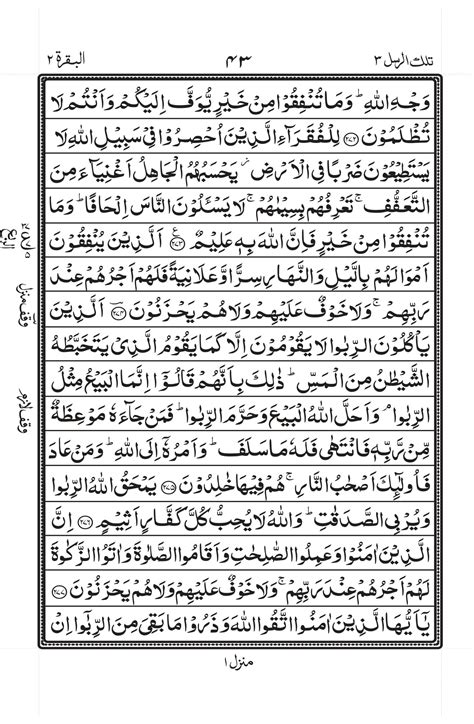 تلك الرسل ٣ ٤٣ البقرة ٢
وَجْهِ اللّٰهِ ؕ وَمَا تُنْفِقُوْا مِنْ خَيْرٍ يُّوَفَّ اِلَيْكُمْ وَاَنْتُمْ لَا
تُظْلَمُوْنَ ﴿۲۷۲﴾ لِلْفُقَرَآءِ الَّذِيْنَ اُحْصِرُوْا فِىْ سَبِيْلِ اللّٰهِ لَا
يَسْتَطِيْعُوْنَ ضَرْبًا فِى الْاَرْضِ ؗ يَحْسَبُهُمُ الْجَاهِلُ اَغْنِيَآءَ مِنَ
التَّعَفُّفِ ۚ تَعْرِفُهُمْ بِسِيْمٰهُمْ ۚ لَا يَسْـَٔلُوْنَ النَّاسَ اِلْحَافًا ؕ وَمَا
تُنْفِقُوْا مِنْ خَيْرٍ فَاِنَّ اللّٰهَ بِهٖ عَلِيْمٌ ﴿۲۷۳﴾ اَلَّذِيْنَ يُنْفِقُوْنَ
اَمْوَالَهُمْ بِالَّيْلِ وَالنَّهَارِ سِرًّا وَّعَلَانِيَةً فَلَهُمْ اَجْرُهُمْ عِنْدَ
رَبِّهِمْ ۚ وَلَا خَوْفٌ عَلَيْهِمْ وَلَا هُمْ يَحْزَنُوْنَ ﴿۲۷۴﴾ اَلَّذِيْنَ
يَاْكُلُوْنَ الرِّبٰوا لَا يَقُوْمُوْنَ اِلَّا كَمَا يَقُوْمُ الَّذِىْ يَتَخَبَّطُهُ
الشَّيْطٰنُ مِنَ الْمَسِّ ؕ ذٰلِكَ بِاَنَّهُمْ قَالُوْٓا اِنَّمَا الْبَيْعُ مِثْلُ
الرِّبٰوا ۘ وَاَحَلَّ اللّٰهُ الْبَيْعَ وَحَرَّمَ الرِّبٰوا ؕ فَمَنْ جَآءَهٗ مَوْعِظَةٌ
مِّنْ رَّبِّهٖ فَانْتَهٰى فَلَهٗ مَا سَلَفَ ؕ وَاَمْرُهٗٓ اِلَى اللّٰهِ ؕ وَمَنْ عَادَ
فَاُولٰٓئِكَ اَصْحٰبُ النَّارِ ۚ هُمْ فِيْهَا خٰلِدُوْنَ ﴿۲۷۵﴾ يَمْحَقُ اللّٰهُ الرِّبٰوا
وَيُرْبِى الصَّدَقٰتِ ؕ وَاللّٰهُ لَا يُحِبُّ كُلَّ كَفَّارٍ اَثِيْمٍ ﴿۲۷۶﴾ اِنَّ
الَّذِيْنَ اٰمَنُوْا وَعَمِلُوا الصّٰلِحٰتِ وَاَقَامُوا الصَّلٰوةَ وَاٰتَوُا الزَّكٰوةَ
لَهُمْ اَجْرُهُمْ عِنْدَ رَبِّهِمْ ۚ وَلَا خَوْفٌ عَلَيْهِمْ وَلَا هُمْ يَحْزَنُوْنَ ﴿۲۷۷﴾
يٰٓاَيُّهَا الَّذِيْنَ اٰمَنُوا اتَّقُوا اللّٰهَ وَذَرُوْا مَا بَقِىَ مِنَ الرِّبٰٓوا اِنْ
الربع
وقف منزل
وقف لازم
منزل ١